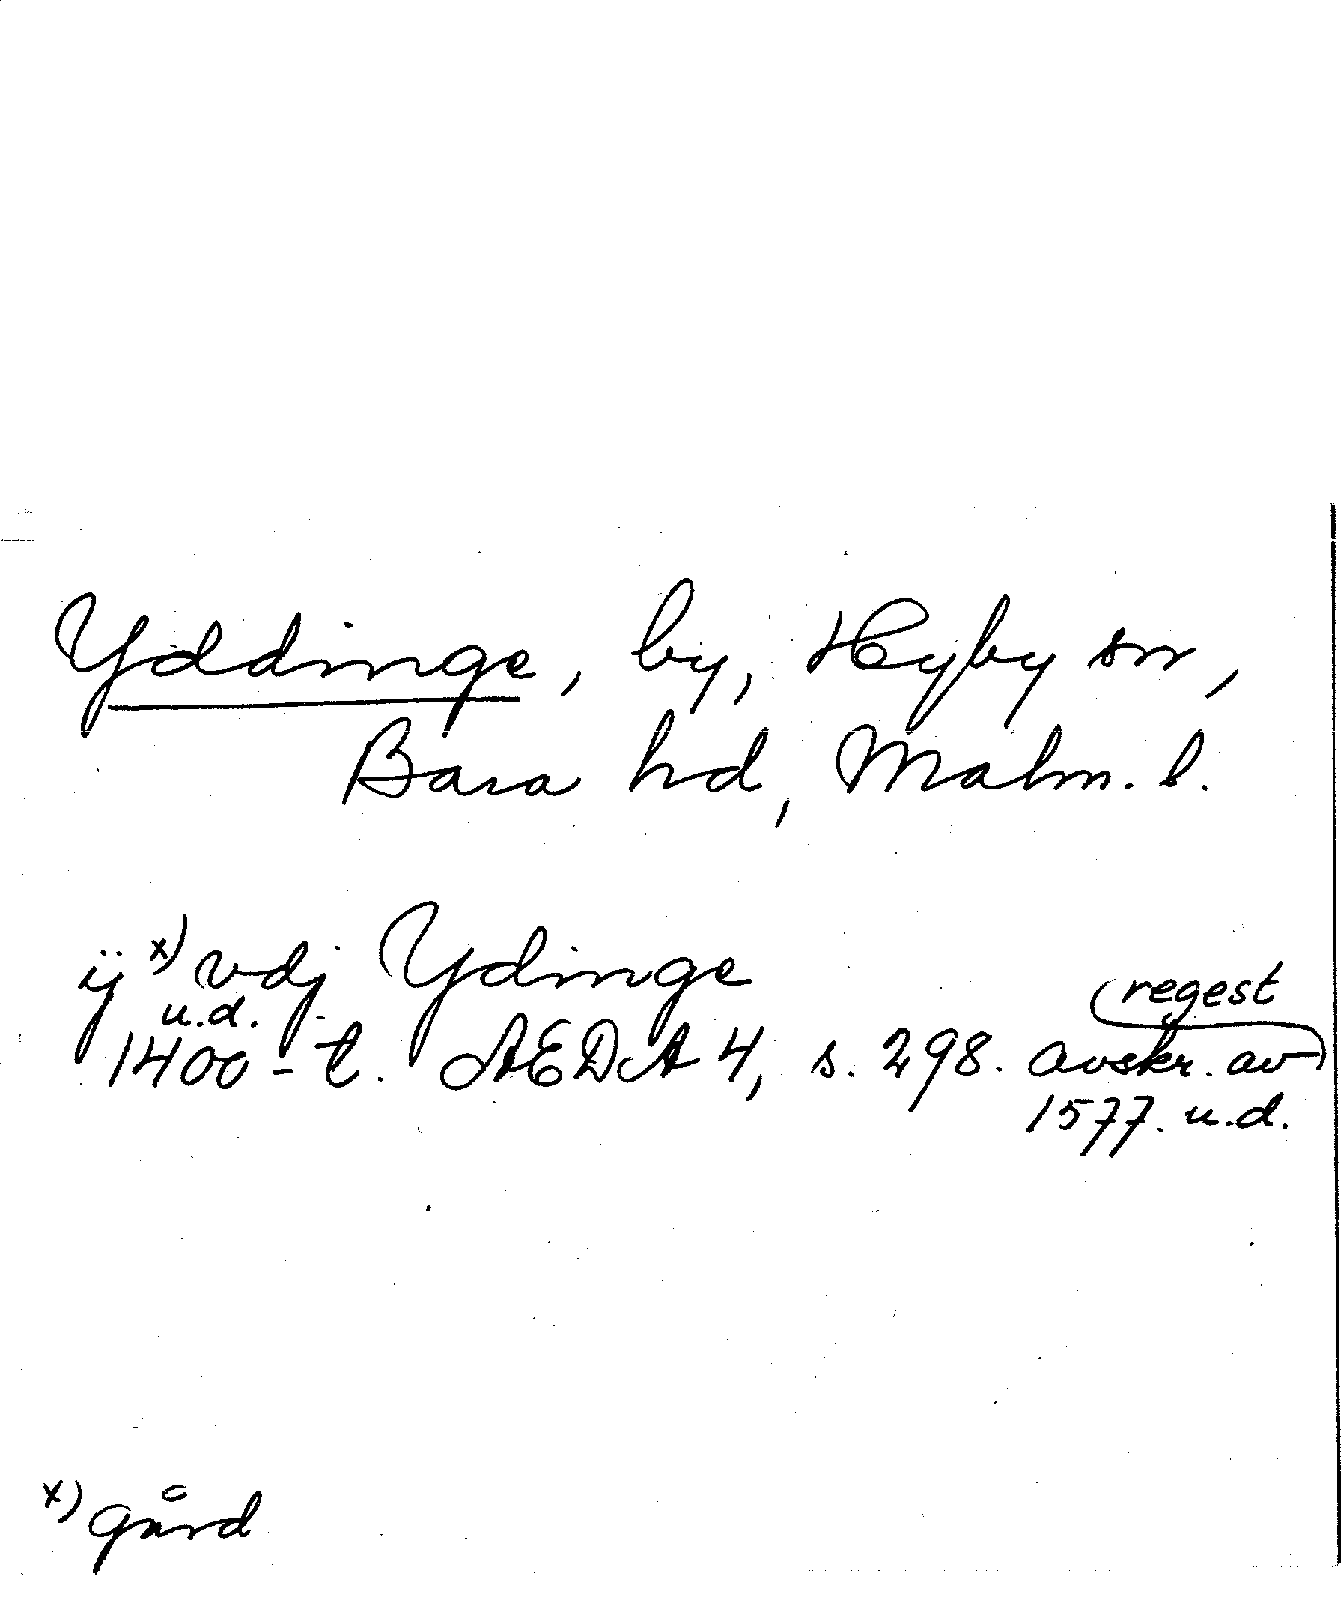 Yddinge, by, Hyby sn,
Bara hd, Malm. l.
ÿ x) vdj Ydinge
u.d.
1400-t. AEDA 4, s. 298. avskr. av
regest
1577. u.d.
x) gård